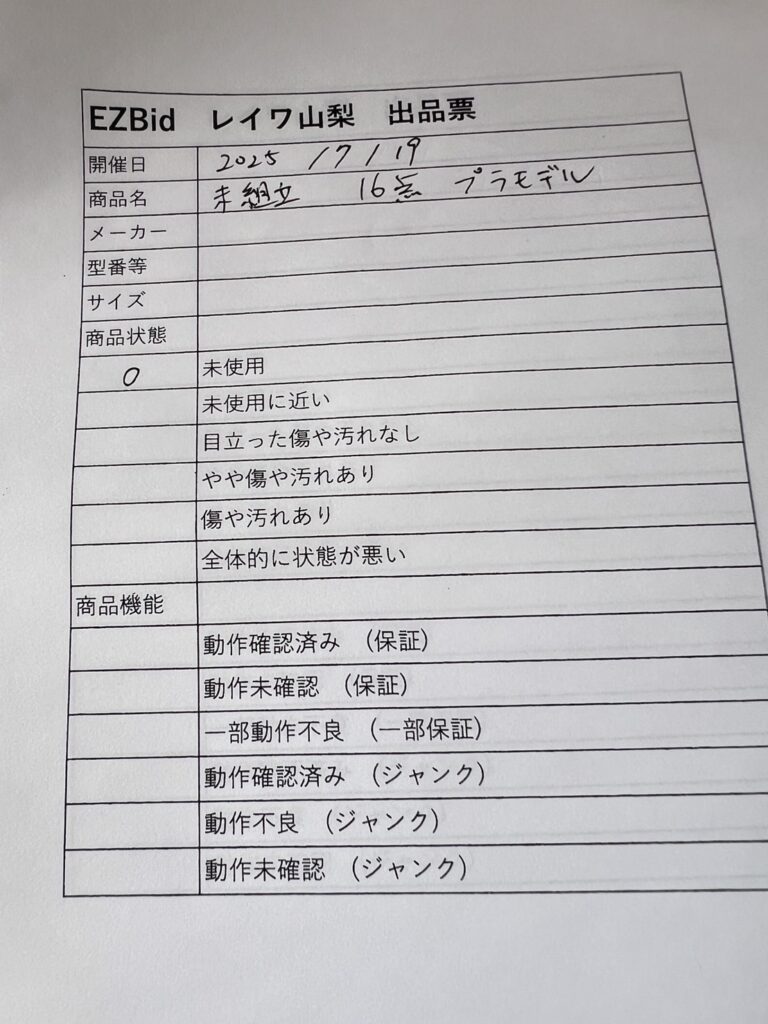 EZBid レイワ山梨 出品票
開催日 2025 / 7 / 19
商品名 未組立 16点 プラモデル
メーカー
型番等
サイズ
商品状態
○ 未使用
未使用に近い
目立った傷や汚れなし
やや傷や汚れあり
傷や汚れあり
全体的に状態が悪い
商品機能
動作確認済み (保証)
動作未確認 (保証)
一部動作不良 (一部保証)
動作確認済み (ジャンク)
動作不良 (ジャンク)
動作未確認 (ジャンク)